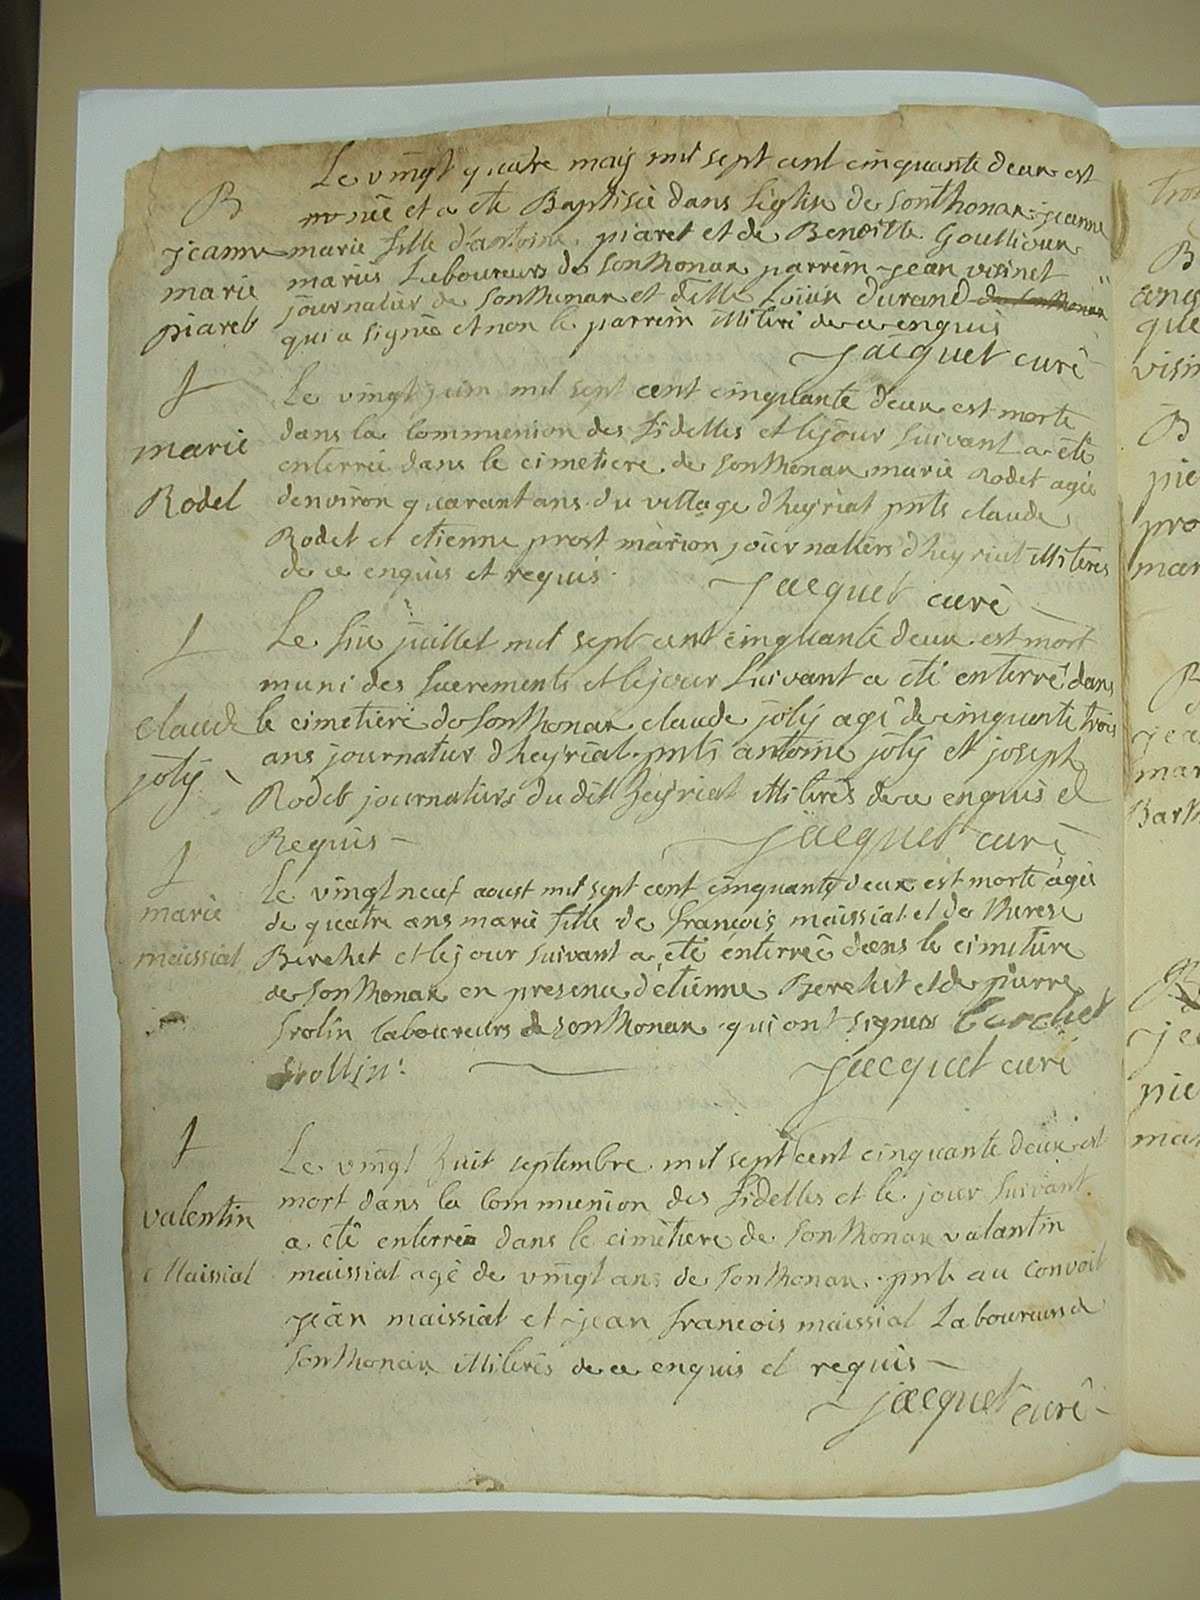 Le vingt quatre may mil sept cent cinquante deux est
B
née et a eté Baptisée dans l'eglise de Sonthonax jeanne
jeanne
marie fille d'antoine piaret et de Benoitte Goullioux
marie
mariés Laboureurs de Sonthonax parrein jean visinet
piaret
journalier de Sonthonax et dlle Loüise durand de Sonthonax
qui a signée et non le parrein illiteré de ce enquis
jacquet curé
Le vingt juin mil sept cent cinquante deux est morte
dans la Communion des fidelles et le jour suivant a eté
marie
enterrée dans le cimetiere de Sonthonax marie Rodet agée
Rodet
d'environ quarant ans du village d'heyriat pnts claude
Rodet et etienne prost marion journaliers d'heyriat illiterés
de ce enquis et requis
jacquet curé
Le six juillet mil sept cent cinquante deux est mort
muni des sacrements et le jour suivant a eté enterré dans
claude
le cimetiere de Sonthonax claude joly agé de cinquante trois
joly
ans journalier d'heyriat pnts antoine joly et joseph
Rodet journaliers du dit heyriat illiterés de ce enquis et
Requis
jacquet curé
Le vingt neuf aoust mil sept cent cinquante deux est morte agée
marie
de quatre ans marie fille de françois maissiat et de therese
maissiat
Berchet et le jour suivant a eté enterreé dans le cimitiere
de Sonthonax en presence d'etienne Berchet et de pierre
frolin laboureurs de Sonthonax qui ont signés berchet
frollin
jacquet curé
Le vingt huit septembre mil sept cent cinquante deux est
mort dans la Communion des fidelles et le jour suivant
valentin
a eté enterré dans le cimetiere de Sonthonax valantin
Maissiat
maissiat agé de vingt ans de Sonthonax pnts au convoit
jean maissiat et jean françois maissiat Laboureurs de
Sonthonax illiterés de ce enquis et requis
jacquet curé